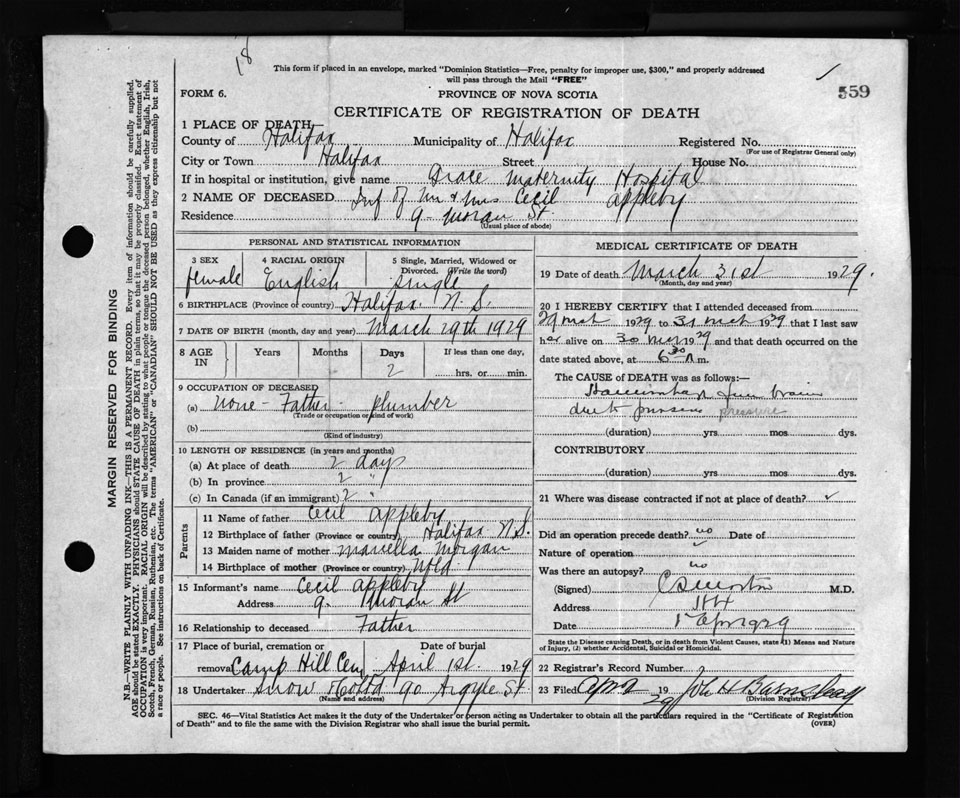 18
This form if placed in an envelope, marked "Dominion Statistics—Free, penalty for improper use, $300," and properly addressed
will pass through the Mail "FREE"
559
FORM 6.
PROVINCE OF NOVA SCOTIA
CERTIFICATE OF REGISTRATION OF DEATH
1 PLACE OF DEATH
County of Halifax Municipality of Halifax Registered No.
(For use of Registrar General only)
City or Town Halifax Street House No.
If in hospital or institution, give name Grace Maternity Hospital
2 NAME OF DECEASED Inf of Mr & Mrs Cecil Appleby
Residence 9 Moran St.
(Usual place of abode)
PERSONAL AND STATISTICAL INFORMATION
3 SEX 4 RACIAL ORIGIN 5 Single, Married, Widowed or
Divorced. (Write the word)
female English Single
6 BIRTHPLACE (Province or country) Halifax N.S.
7 DATE OF BIRTH (month, day and year) March 29th 1929
8 AGE IN Years Months Days If less than one day,
2 hrs. or min.
9 OCCUPATION OF DECEASED
(a) none - Father - plumber
(Trade or occupation or kind of work)
(b)
(Kind of industry)
10 LENGTH OF RESIDENCE (in years and months)
(a) At place of death 2 days
(b) In province 2 "
(c) In Canada (if an immigrant) 2 "
Parents
11 Name of father Cecil Appleby
12 Birthplace of father (Province or country) Halifax N.S.
13 Maiden name of mother Morgan
14 Birthplace of mother (Province or country) Nfld.
15 Informant's name Cecil Appleby
Address 9 Moran St
16 Relationship to deceased Father
17 Place of burial, cremation or Date of burial
removal Camp Hill Cem April 1st. 1929
18 Undertaker Snow & Co Ltd 90 Argyle St.
(Name and address)
MEDICAL CERTIFICATE OF DEATH
19 Date of death March 31st 1929.
(Month, day and year)
20 I HEREBY CERTIFY that I attended deceased from
29 Mch 1929 to 31 Mch 1929 that I last saw
her alive on 30 1929 and that death occurred on the
date stated above, at 6 30 A m.
The CAUSE of DEATH was as follows:—
brain
due to pressure
(duration) yrs mos dys.
CONTRIBUTORY
(duration) yrs mos dys.
21 Where was disease contracted if not at place of death?
Did an operation precede death? no Date of
Nature of operation
Was there an autopsy? no
(Signed) M.D.
Address Hfx
Date 1 Apr 1929
State the Disease causing Death, or in death from Violent Causes, state (1) Means and Nature
of Injury, (2) whether Accidental, Suicidal or Homicidal.
22 Registrar's Record Number
23 Filed Apr 2 1929 John H Barnstead
(Division Registrar)
SEC. 46—Vital Statistics Act makes it the duty of the Undertaker or person acting as Undertaker to obtain all the particulars required in the "Certificate of Registration
of Death" and to file the same with the Division Registrar who shall issue the burial permit.
(OVER)
MARGIN RESERVED FOR BINDING
N.B.—WRITE PLAINLY WITH UNFADING INK—THIS IS A PERMANENT RECORD. Every item of information should be carefully supplied.
AGE should be stated EXACTLY. PHYSICIANS should STATE CAUSE OF DEATH in plain terms, so that it may be properly classified. Exact statement of
OCCUPATION is very important. RACIAL ORIGIN will be described by stating to what people or tongue the deceased person belonged, whether English, Irish,
Scotch, French, German, Russian, Ruthenian, etc. The terms "AMERICAN" or "CANADIAN" SHOULD NOT BE USED as they express citizenship but not
a race or people. See instructions on back of Certificate.